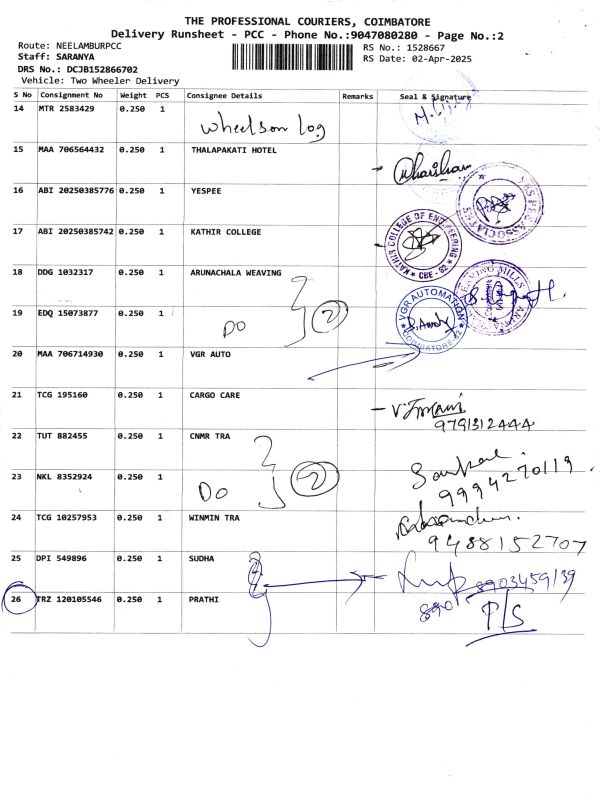 THE PROFESSIONAL COURIERS, COIMBATORE
Delivery Runsheet - PCC - Phone No.:9047080280 - Page No.:2
Route: NEELAMBURPCC
Staff: SARANYA
DRS No.: DCJB152866702
Vehicle: Two Wheeler Delivery
RS No.: 1528667
RS Date: 02-Apr-2025
S No Consignment No Weight PCS Consignee Details Remarks Seal & Signature
14 MTR 2583429 0.250 1 Wheelson log
15 MAA 706564432 0.250 1 THALAPAKATI HOTEL
16 ABI 20250385776 0.250 1 YESPEE
17 ABI 20250385742 0.250 1 KATHIR COLLEGE
KATHIR COLLEGE OF ENGINEERING CBE - 62
18 DDG 1032317 0.250 1 ARUNACHALA WEAVING
19 EDQ 15073877 0.250 1 DO 2
VGR AUTOMATION COIMBATORE-62
20 MAA 706714930 0.250 1 VGR AUTO
21 TCG 195160 0.250 1 CARGO CARE
9791312444
22 TUT 882455 0.250 1 CNMR TRA
23 NKL 8352924 0.250 1 DO 2
9994270119
24 TCG 10257953 0.250 1 WINMIN TRA
9488152707
25 DPI 549896 0.250 1 SUDHA
8903459139
26 TRZ 120105546 0.250 1 PRATHI
890 P/S